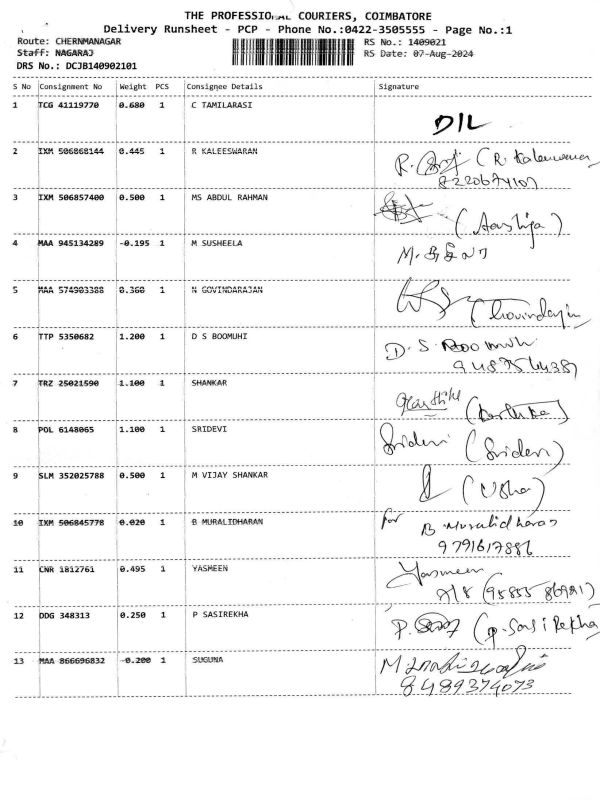 THE PROFESSIONAL COURIERS, COIMBATORE
Delivery Runsheet - PCP - Phone No.:0422-3505555 - Page No.:1
Route: CHERNMANAGAR
RS No.: 1409021
Staff: NAGARAJ
RS Date: 07-Aug-2024
DRS No.: DCJB140902101
S No Consignment No Weight PCS Consignee Details Signature
1 TCG 41119770 0.680 1 C TAMILARASI
DIL
2 IXM 506868144 0.445 1 R KALEESWARAN
R.
3 IXM 506857400 0.500 1 MS ABDUL RAHMAN
4 MAA 945134289 -0.195 1 M SUSHEELA
5 MAA 574903388 0.360 1 N GOVINDARAJAN
6 TTP 5350682 1.200 1 D S BOOMUHI
D. S.
7 TRZ 25021590 1.100 1 SHANKAR
8 POL 6148065 1.100 1 SRIDEVI
Sridevi (Sridevi)
9 SLM 352025788 0.500 1 M VIJAY SHANKAR
(Usha)
10 IXM 506845778 0.020 1 B MURALIDHARAN
for B Muralidharan
9791617886
11 CNR 1812761 0.495 1 YASMEEN
Yasmeen
12 DDG 348313 0.250 1 P SASIREKHA
P. (p. Sasi Rekha)
13 MAA 866696832 -0.200 1 SUGUNA
8489374073